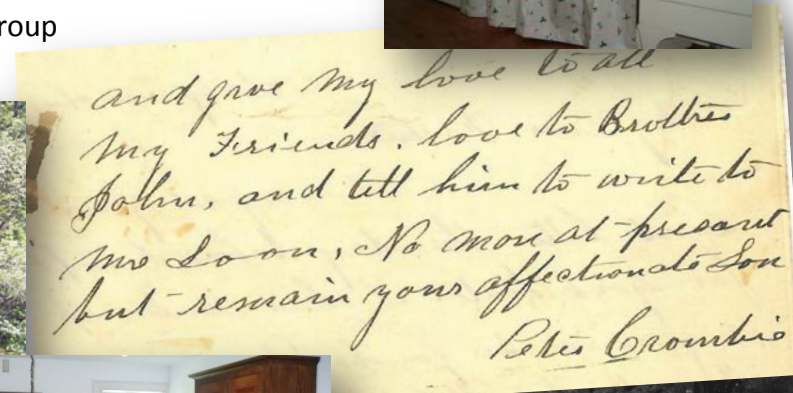 roup
and give my love to all
my Friends. love to Brother
John, and tell him to write to
me Soon, No more at presant
but remain your affectionate Son
Peter Crombie